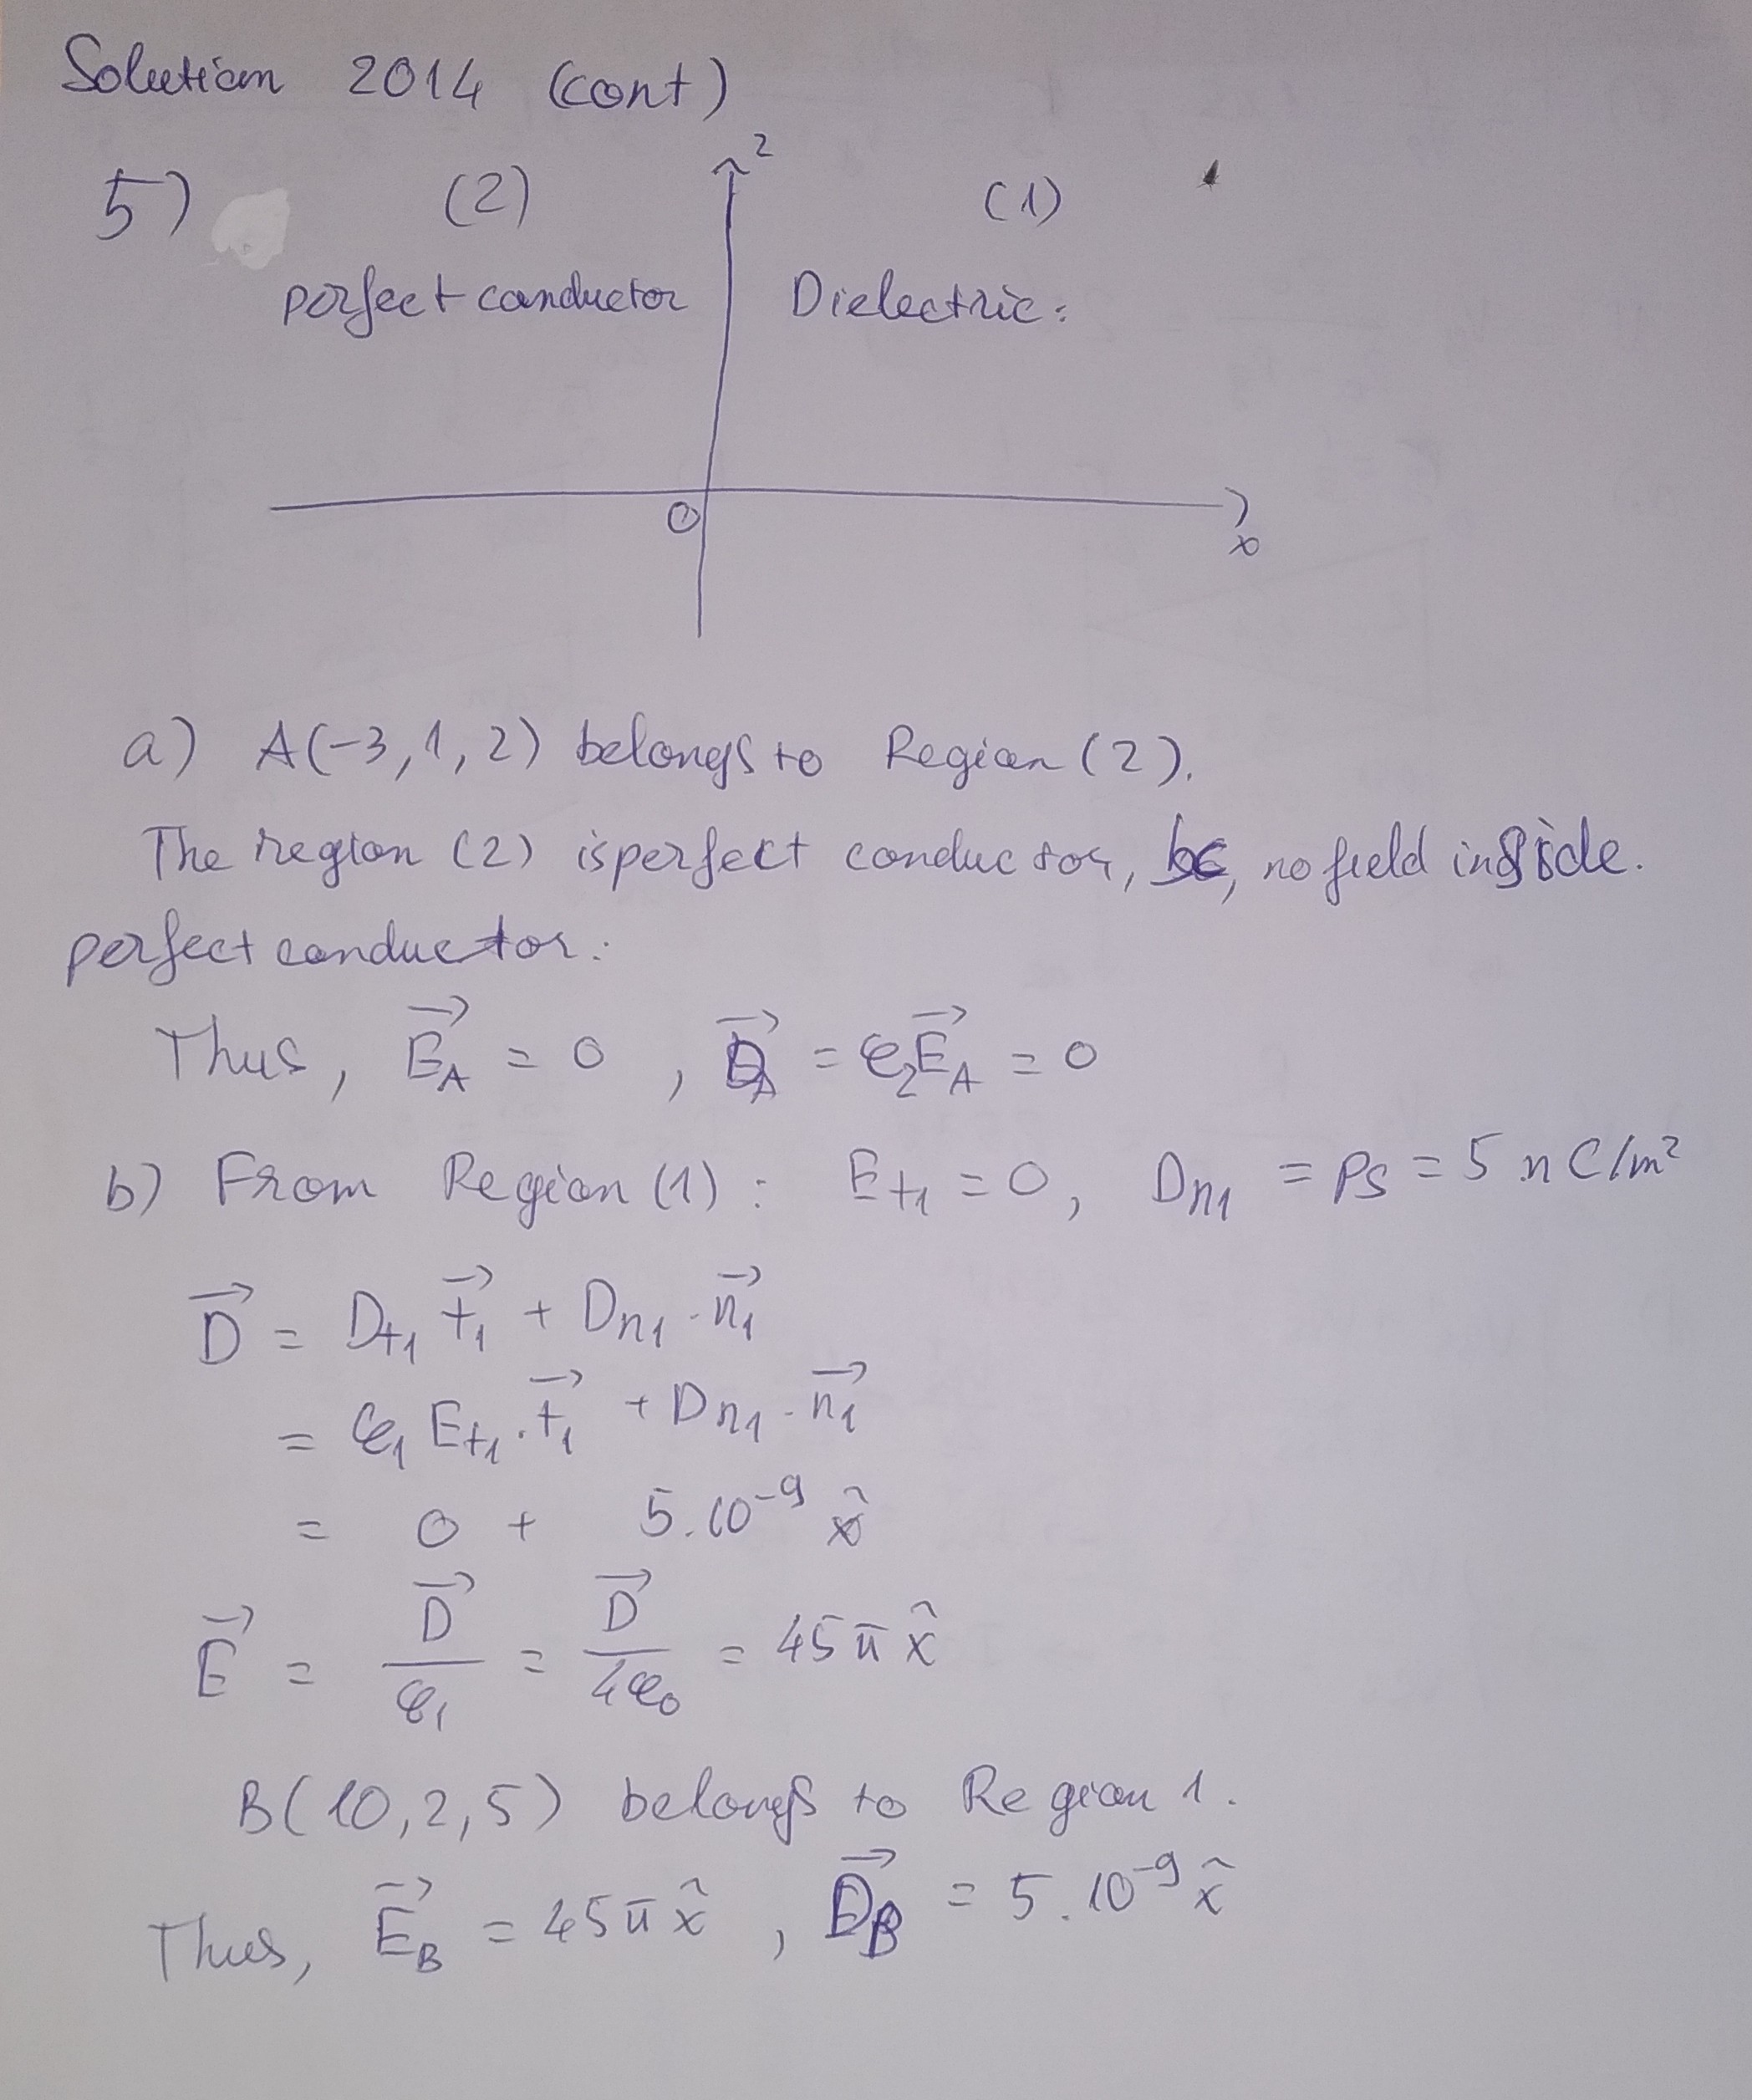 Solution 2014 (cont)
5)
(2)
z
(1)
perfect conductor
Dielectric:
O
x
a) A(-3,1,2) belongs to Region (2).
The region (2) is perfect conductor, no field inside.
perfect conductor:
Thus, E⃗_A = 0 , D⃗_A = ε₂E⃗_A = 0
b) From Region (1): E_t1 = 0, D_n1 = ρs = 5 nC/m²
D⃗ = D_t1 t⃗₁ + D_n1 · n⃗₁
= ε₁ E_t1 · t⃗₁ + D_n1 · n⃗₁
= 0 + 5.10⁻⁹ x̂
E⃗ = D⃗/ε₁ = D⃗/4ε₀ = 45π x̂
B(10,2,5) belongs to Region 1.
Thus, E⃗_B = 45π x̂ , D⃗_B = 5.10⁻⁹ x̂